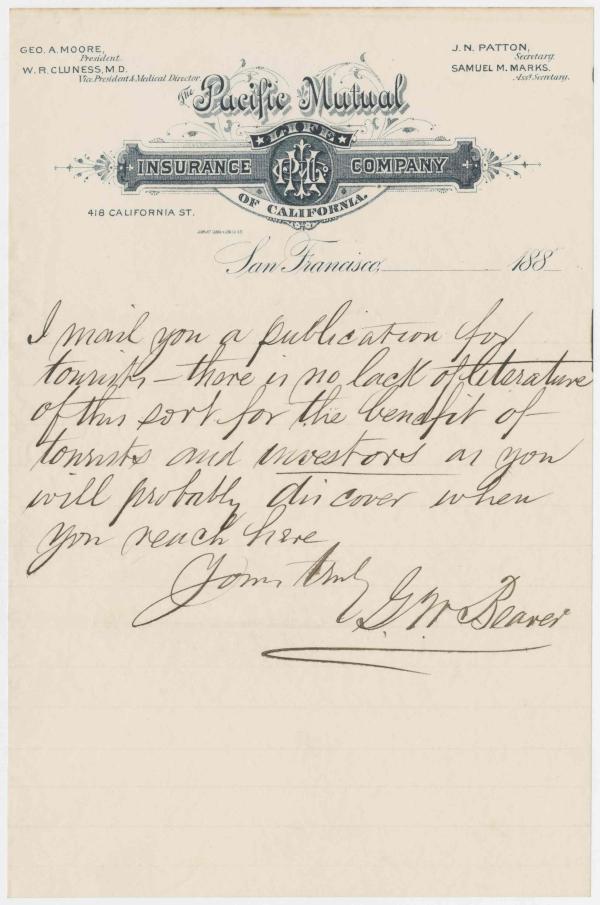 GEO. A. MOORE,
President.
W. R. CLUNESS, M.D.
Vice President & Medical Director.
J. N. PATTON,
Secretary.
SAMUEL M. MARKS.
Ass't Secretary.
The Pacific Mutual
LIFE
INSURANCE COMPANY
OF CALIFORNIA.
418 CALIFORNIA ST.
San Francisco, 188
I mail you a publication for
tourists – there is no lack of literature
of this sort for the benefit of
tourists and investors as you
will probably discover when
you reach here
Yours truly
G W Beaver